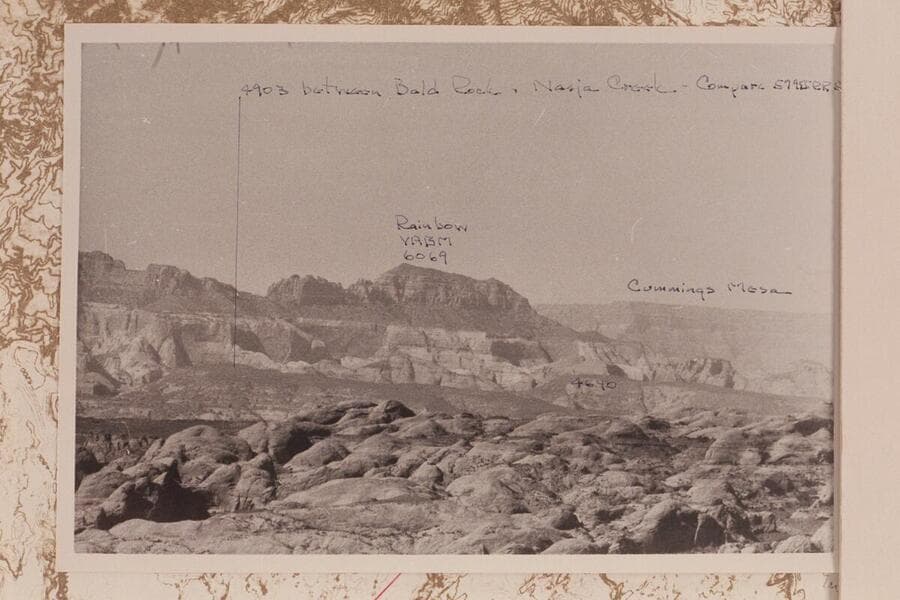 4903 between Bald Rock & Nasja Creek - Compare
Rainbow
VABM
6069
Cummings Mesa
4690